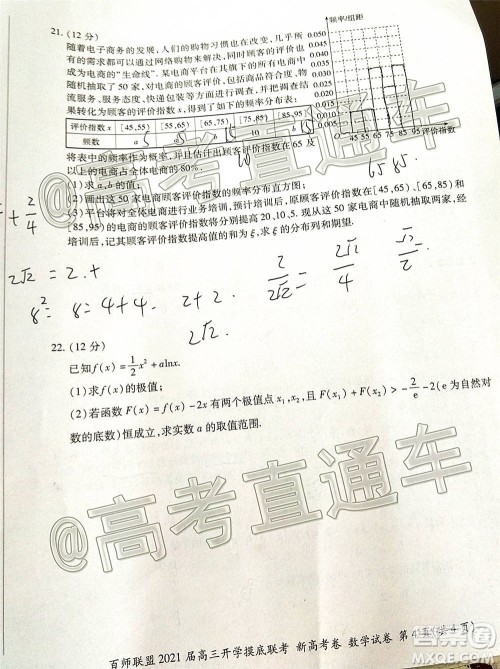 21. (12 分)
随着电子商务的发展, 人们的购物习惯也在改变, 几乎所
有的需求都可以通过网络购物来解决, 同时顾客的评价也
成为电商的“生命线”. 某电商平台在其旗下的所有电商中
随机抽取了 50 家, 对电商的顾客评价, 包括商品符合度、物
流服务、服务态度、快递包装等方面进行调查, 并把调查结
果转化为顾客评价指数 x, 得到了如下的频率分布表:
评价指数 x [45,55) [55,65) [65,75) [75,85) [85,95]
频数 a 5 b 10 15
频率/组距
0.050
0.045
0.040
0.035
0.030
0.025
0.020
0.015
0.010
0.005
0.000
45 55 65 75 85 95 评价指数
将表中的频率作为概率, 并且估计出顾客评价指数在 65 及
以上的电商占全体电商的 80%.
(1)求 a,b 的值;
(2)画出这 50 家电商顾客评价指数的频率分布直方图;
(3)平台将对全体电商进行业务培训, 预计培训后, 原顾客评价指数在 [45,65) 、[65,85) 和
[85,95) 的电商的顾客评价指数将分别提高 20,10,5. 现从这 50 家电商中随机抽取两家, 经
培训后, 记其顾客评价指数提高值的和为 ξ, 求 ξ 的分布列和期望.
65 85
+ 2/4
2√2 = 2. +
8² = 8 = 4 + 4. 2 + 2
2√2.
2/2√2 = 2√2/4 √2/2
22. (12 分)
已知 f(x) = 1/2 x² + alnx.
(1)求 f(x) 的极值;
(2)若函数 F(x) = f(x) - 2x 有两个极值点 x₁,x₂, 且 F(x₁) + F(x₂) > -2/e - 2(e 为自然对
数的底数) 恒成立, 求实数 a 的取值范围.
@高考直通车
@高考直通车
百师联盟 2021 届高三开学摸底联考 新高考卷 数学试卷 第 4 页(共 4 页)